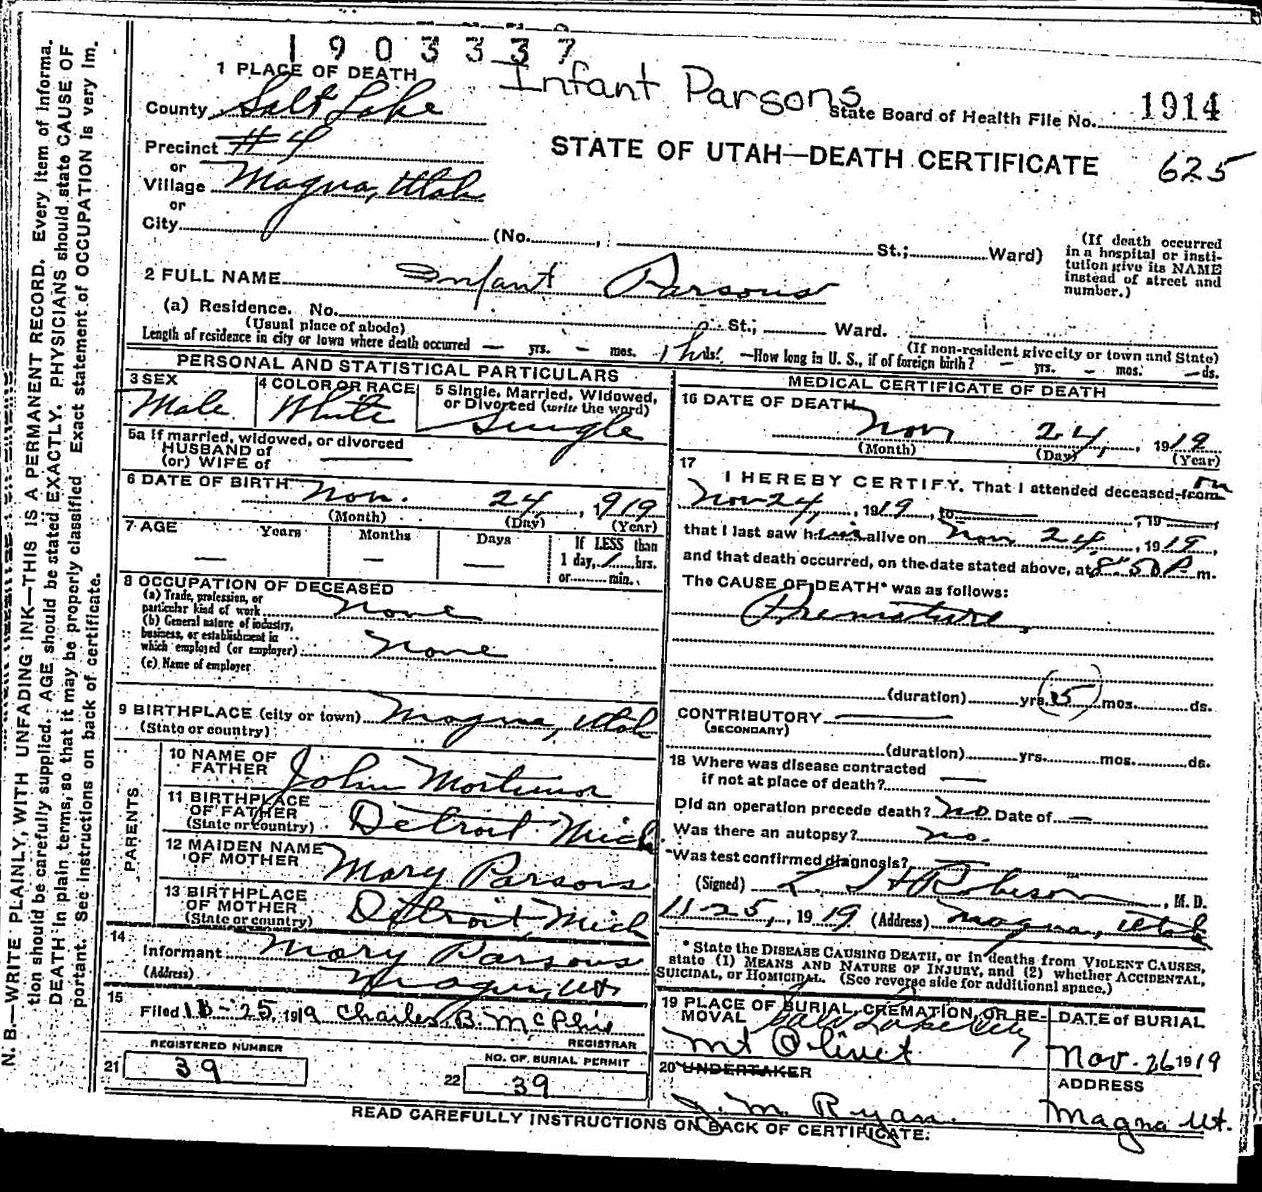 1903337
Infant Parsons
1 PLACE OF DEATH
County Salt Lake
State Board of Health File No. 1914
Precinct #4
STATE OF UTAH—DEATH CERTIFICATE 625
or
Village Magna, Utah
or
City (No. , St.; Ward)
(If death occurred in a hospital or insti-
tution give its NAME
instead of street and
number.)
2 FULL NAME Infant Parsons
(a) Residence. No. St.; Ward.
(Usual place of abode)
(If non-resident give city or town and State)
Length of residence in city or town where death occurred — yrs. — mos. 1 hr ds. —How long in U. S., if of foreign birth? — yrs. — mos. — ds.
PERSONAL AND STATISTICAL PARTICULARS
3 SEX
Male
4 COLOR OR RACE
White
5 Single, Married, Widowed,
or Divorced (write the word)
Single
5a If married, widowed, or divorced
HUSBAND of
(or) WIFE of —
6 DATE OF BIRTH Nov. 24, 919
(Month) (Day) (Year)
7 AGE Years Months Days If LESS than
— — — 1 day, 1 hrs.
or min.
8 OCCUPATION OF DECEASED
(a) Trade, profession, or
particular kind of work None
(b) General nature of industry,
business, or establishment in
which employed (or employer) None
(c) Name of employer
9 BIRTHPLACE (city or town) Magna, Utah
(State or country)
PARENTS
10 NAME OF
FATHER John Mortimor
11 BIRTHPLACE
OF FATHER
(State or country) Detroit Mich
12 MAIDEN NAME
OF MOTHER Mary Parsons
13 BIRTHPLACE
OF MOTHER
(State or country) Detroit, Mich
14
Informant Mary Parsons
(Address) Magna, Ut
15
Filed 11-25, 1919 Charles B. McPhie
REGISTRAR
REGISTERED NUMBER
21 39
NO. OF BURIAL PERMIT
22 39
MEDICAL CERTIFICATE OF DEATH
16 DATE OF DEATH
Nov 24, 1919
(Month) (Day) (Year)
17
I HEREBY CERTIFY, That I attended deceased from on
Nov 24, 1919, to , 19
that I last saw him alive on Nov 24, 1919,
and that death occurred, on the date stated above, at 8:50 P. m.
The CAUSE OF DEATH* was as follows:
Premature,
(duration) yrs. (5) mos. ds.
CONTRIBUTORY —
(SECONDARY)
(duration) yrs. mos. ds.
18 Where was disease contracted
if not at place of death? —
Did an operation precede death? no Date of —
Was there an autopsy? no.
Was test confirmed diagnosis? —
(Signed) L. H. Robison, M. D.
11-25, 1919 (Address) Magna, Utah
* State the DISEASE CAUSING DEATH, or in deaths from VIOLENT CAUSES,
state (1) MEANS AND NATURE OF INJURY, and (2) whether ACCIDENTAL,
SUICIDAL, or HOMICIDAL. (See reverse side for additional space.)
19 PLACE OF BURIAL, CREMATION, OR RE-
MOVAL Salt Lake City
Mt Olivet
DATE of BURIAL
Nov. 26 1919
20 UNDERTAKER
J. M. Ryan.
ADDRESS
Magna Ut.
READ CAREFULLY INSTRUCTIONS ON BACK OF CERTIFICATE.
N. B.—WRITE PLAINLY, WITH UNFADING INK—THIS IS A PERMANENT RECORD. Every item of informa-
tion should be carefully supplied. AGE should be stated EXACTLY. PHYSICIANS should state CAUSE OF
DEATH in plain terms, so that it may be properly classified. Exact statement of OCCUPATION is very im-
portant. See instructions on back of certificate.